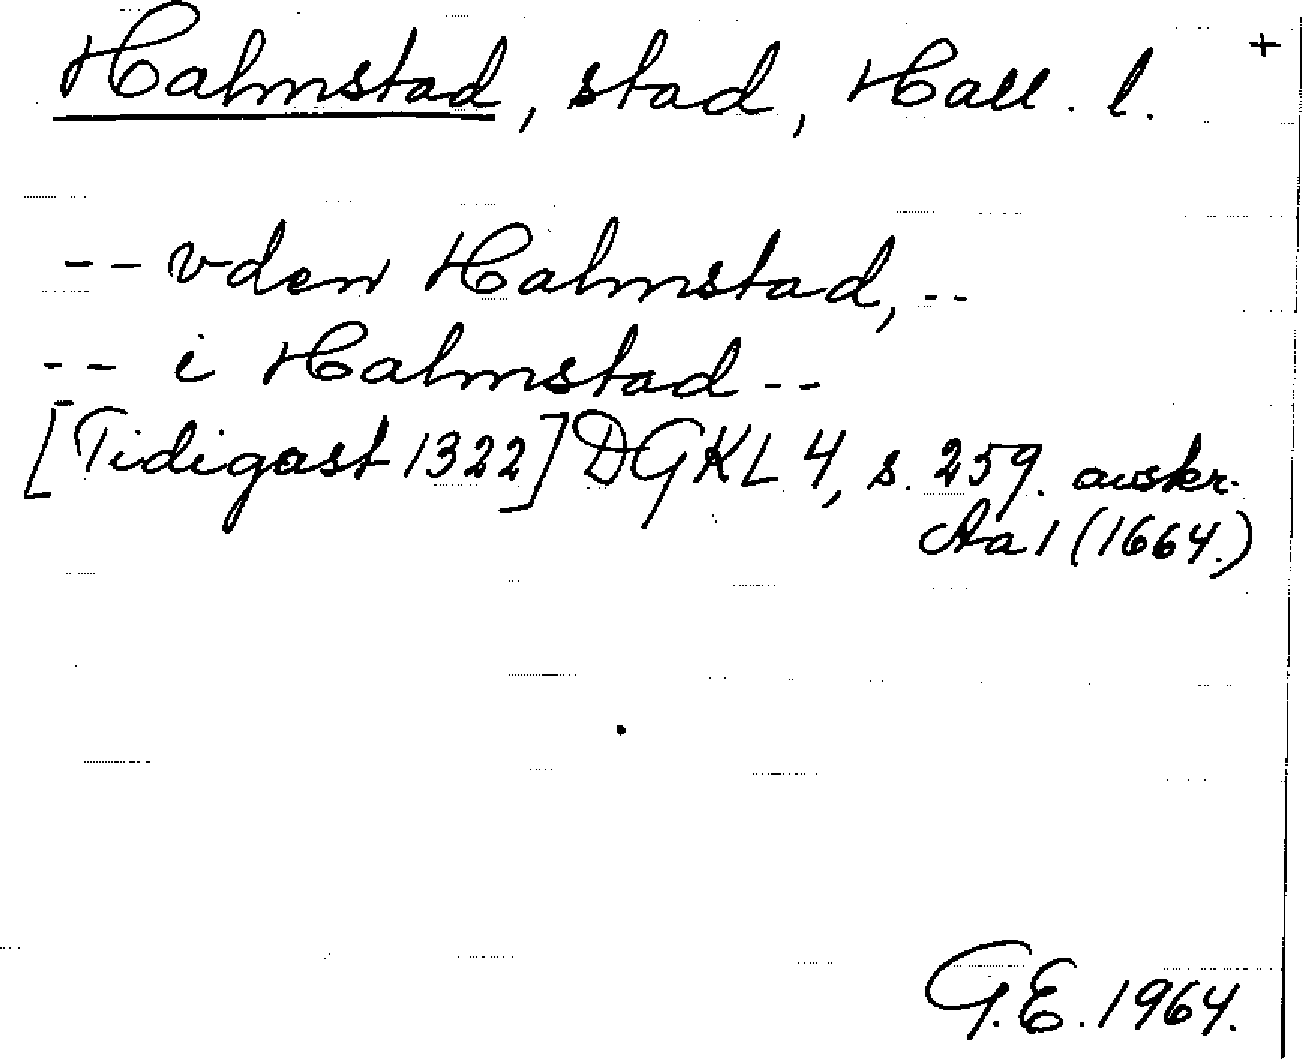 Halmstad, stad, Hall. l. +
-- vden Halmstad, --
-- i Halmstad --
[Tidigast 1322] DGKL 4, s. 259. avskr.
Aa 1 (1664.)
G.E. 1964.